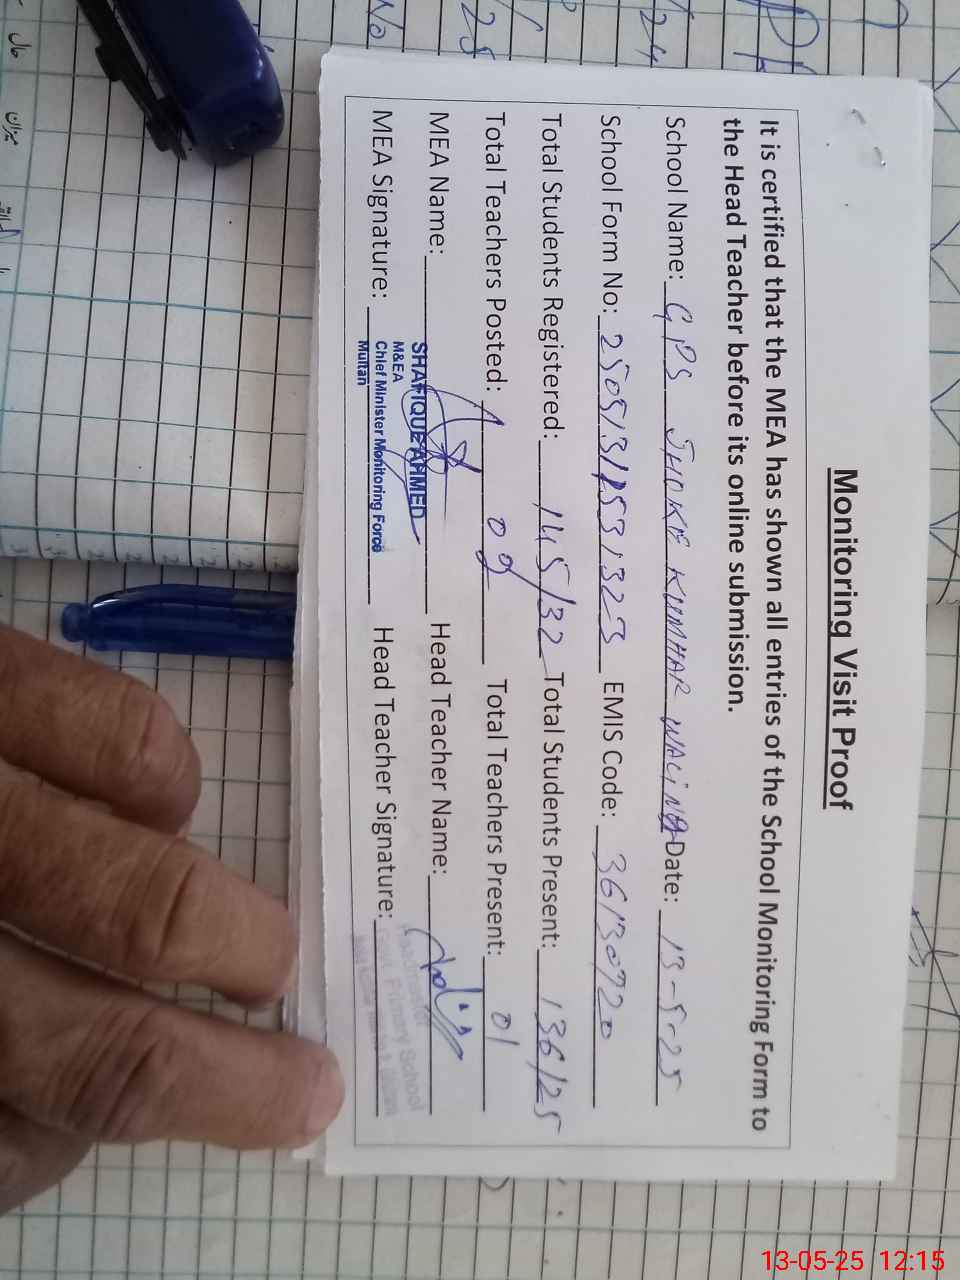 Monitoring Visit Proof
It is certified that the MEA has shown all entries of the School Monitoring Form to
the Head Teacher before its online submission.
School Name: GPS JHOKE KUMHAR Date: 13-5-25
School Form No: EMIS Code: 36130720
Total Students Registered: 145/32 Total Students Present: 136/25
Total Teachers Posted: 02 Total Teachers Present: 01
MEA Name: SHAFIQUE AHMED Head Teacher Name:
M&EA
MEA Signature: Chief Minister Monitoring Force Head Teacher Signature:
Multan
Headmaster
Govt. Primary School
13-05-25 12:15